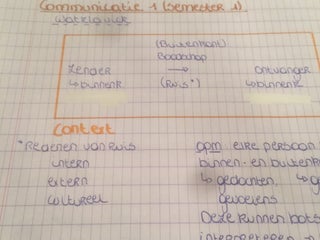 Communicatie 1 (semester 1)
(Buitenkant)
Boodschap
Zender → ontvanger
↳ binnenk (Ruis*) ↳ binnenk
Context
*Redenen van Ruis
intern
extern
cultureel
opm: elke persoon
binnen- en buitenk
↳ gedachten,
gevoelens
Deze kunnen bots
interpreteren →